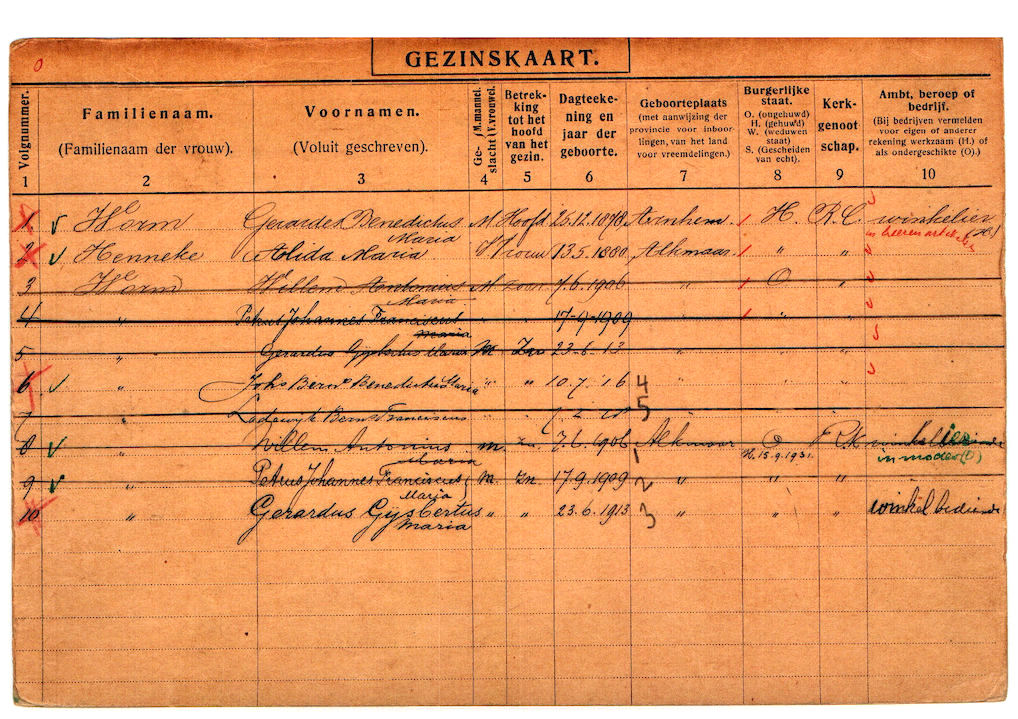 0
GEZINSKAART.
Volgnummer.
Familienaam.
(Familienaam der vrouw).
Voornamen.
(Voluit geschreven).
Ge-slacht M. mannel. V. vrouwel.
Betrek-
king
tot het
hoofd
van het
gezin.
Dagteeke-
ning en
jaar der
geboorte.
Geboorteplaats
(met aanwijzing der
provincie voor inboor-
lingen, van het land
voor vreemdelingen.)
Burgerlijke
staat.
O. (ongehuwd)
H. (gehuwd)
W. (weduwen
staat)
S. (Gescheiden
van echt).
Kerk-
genoot-
schap.
Ambt, beroep of
bedrijf.
(Bij bedrijven vermelden
voor eigen of anderer
rekening werkzaam (H.) of
als ondergeschikte (O).)
1 2 3 4 5 6 7 8 9 10
1 Worm Gerardus Benedictus M Hoofd 25.12.1878 Arnhem H. R.C. winkelier
Maria in heerenartikelen
2 Henneke Alida Maria V Vrouw 13.5.1880 Alkmaar " "
3 Worm Willem Antonius M Zoon 7.6.1906 " O "
Maria
4 " Petrus Johannes Franciscus " " 17-9-1909 " "
Maria
5 " Gerardus Gijsbertus Maria M. Zn 23.6.13 "
6 " Johs Bern Benedictus Maria " " 10.7.16 4 "
7 " Lodewijk Bern Franciscus 5
8 " Willem Antonius m Zn 7.6.1906 Alkmaar O R.K. winkelbediende
Maria 1 H. 15.9.1931. in modes (O)
9 " Petrus Johannes Franciscus M. Zn. 17.9.1909 2 " " "
Maria
10 " Gerardus Gijsbertus " " 23.6.1913 3 " " " winkelbediende
Maria